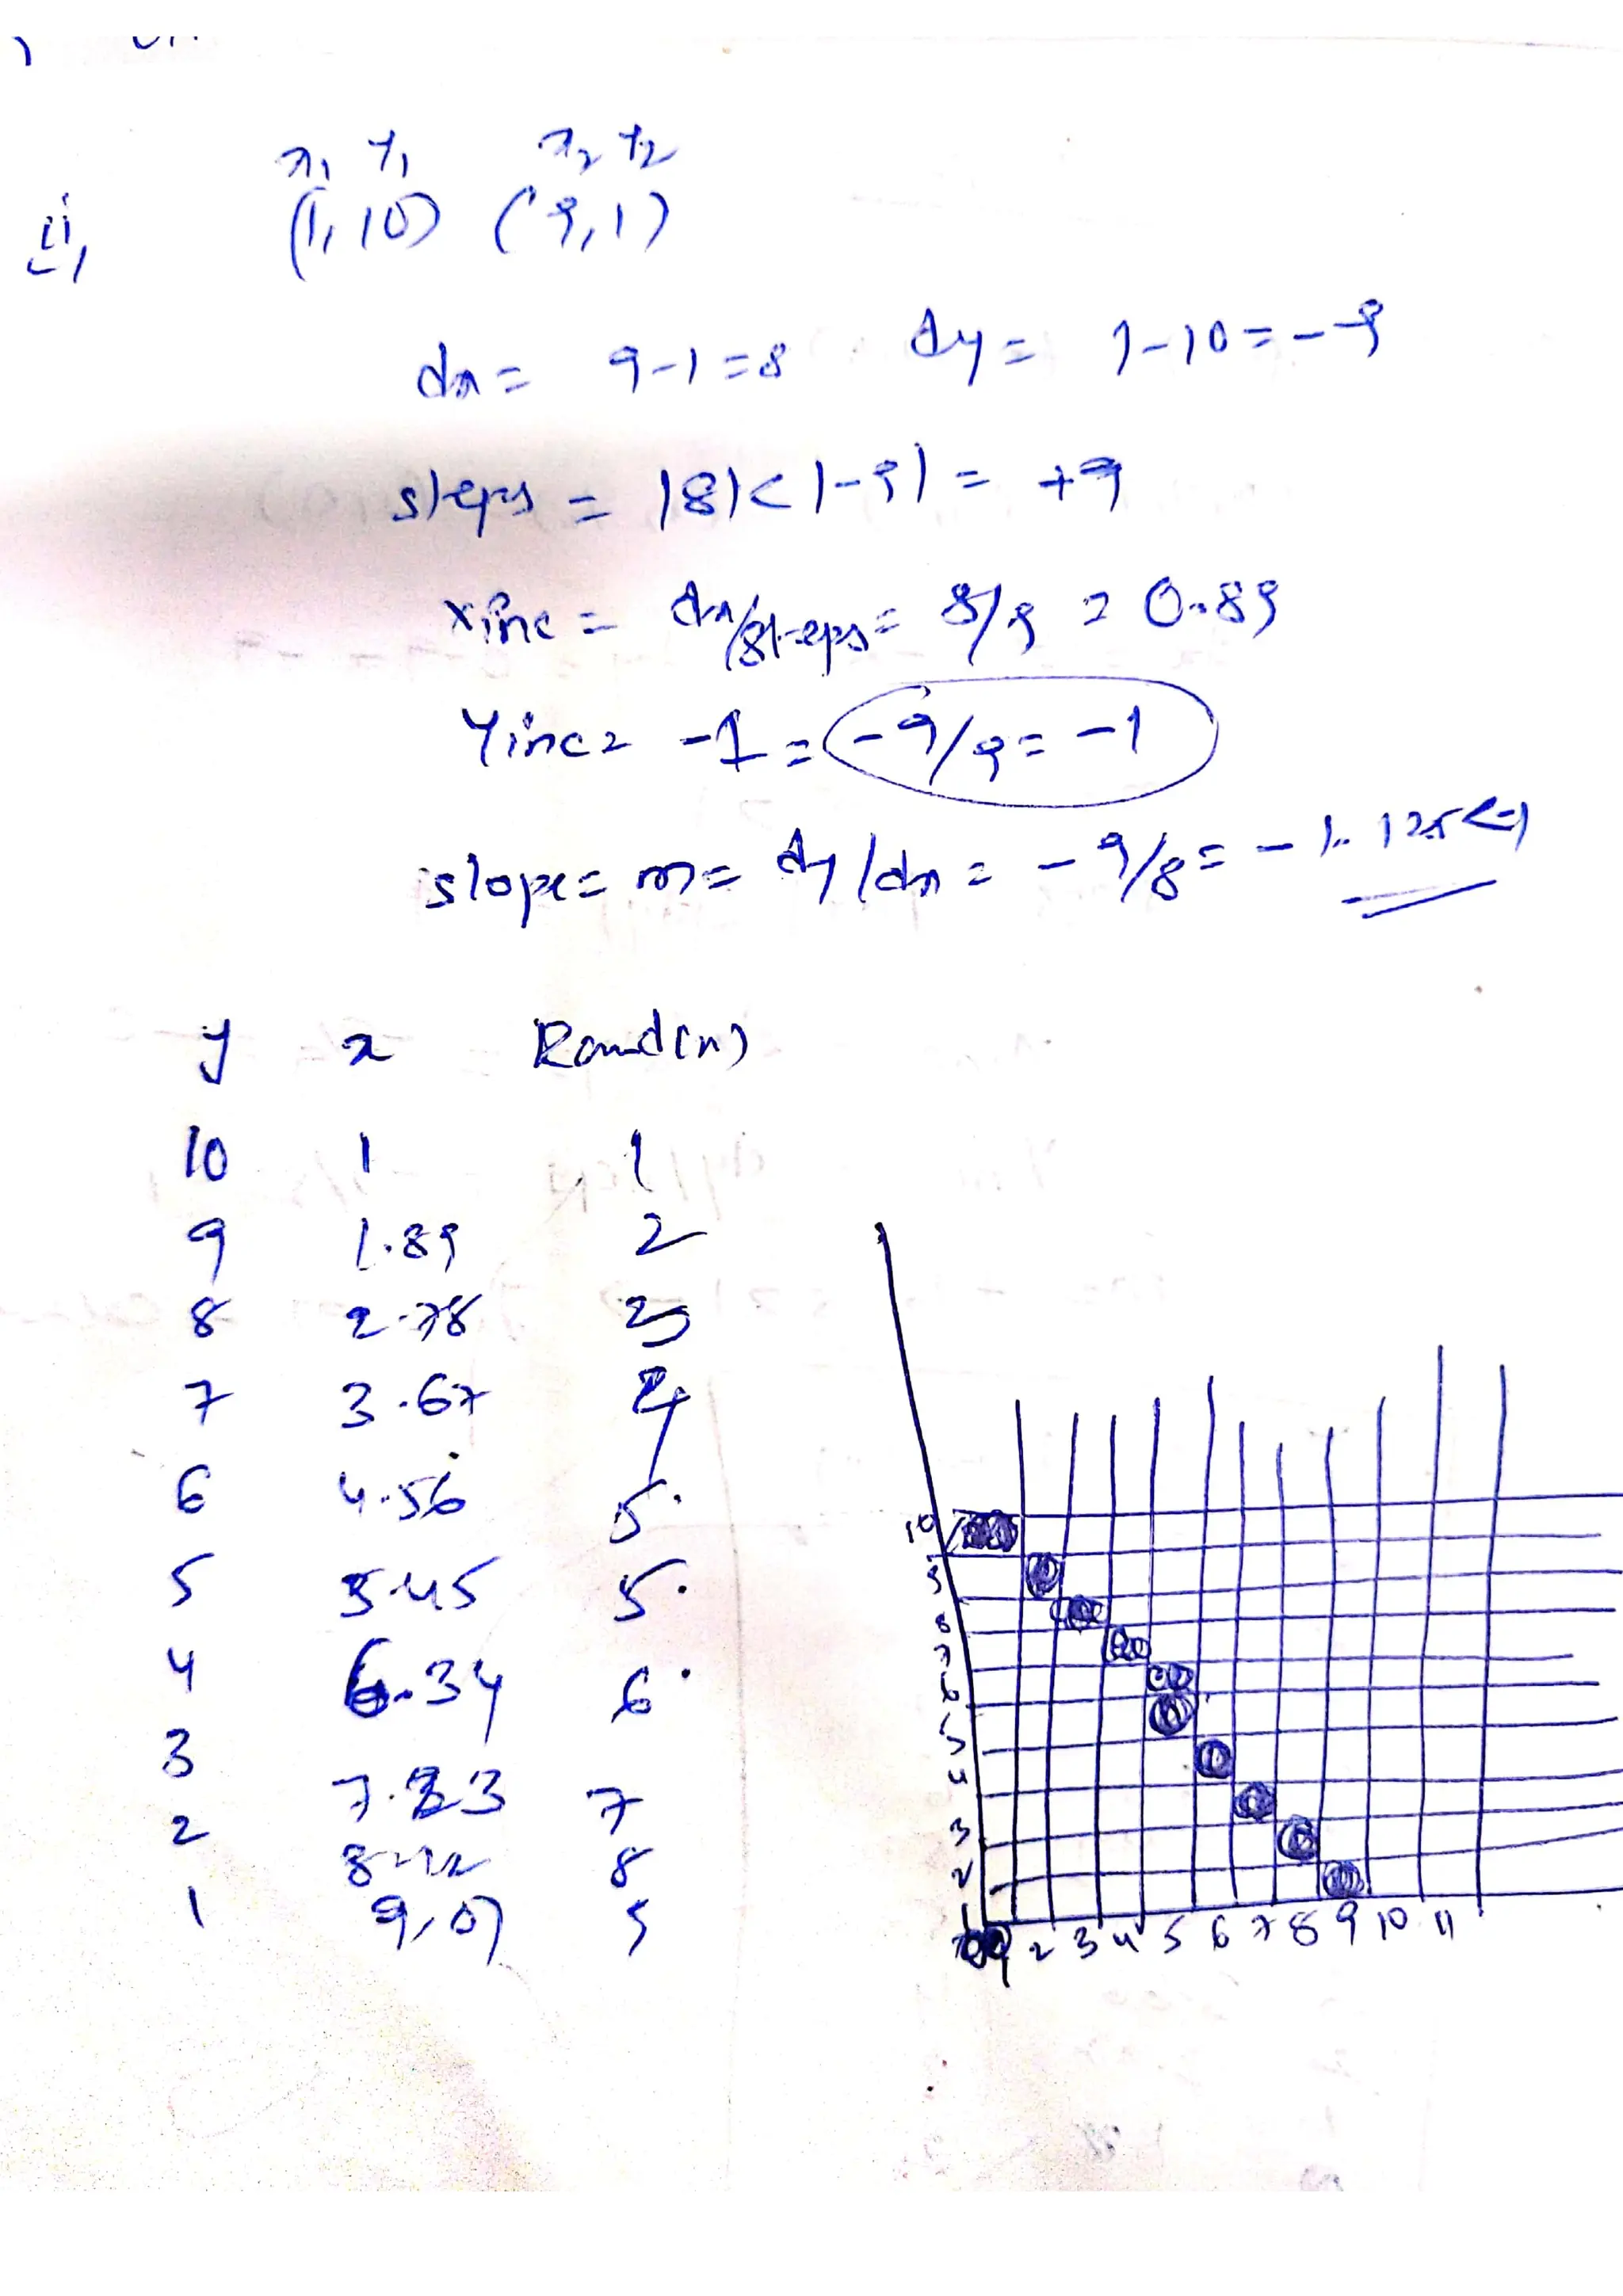 x1 y1 x2 y2
ii, (1,10) (9,1)
dx = 9-1=8 dy = 1-10=-9
steps = |8|<|-9| = +9
xinc = dx/steps = 8/9 = 0.89
Yinc = -1 = -9/9 = -1
slope = m = dy/dx = -9/8 = -1.125<-1
y x Round(x)
10 1 1
9 1.89 2
8 2.78 3
7 3.67 4
6 4.56 5
5 5.45 5
4 6.34 6
3 7.23 7
2 8.12 8
1 9.01 9
10
9
8
7
6
5
4
3
2
1
1 2 3 4 5 6 7 8 9 10 11